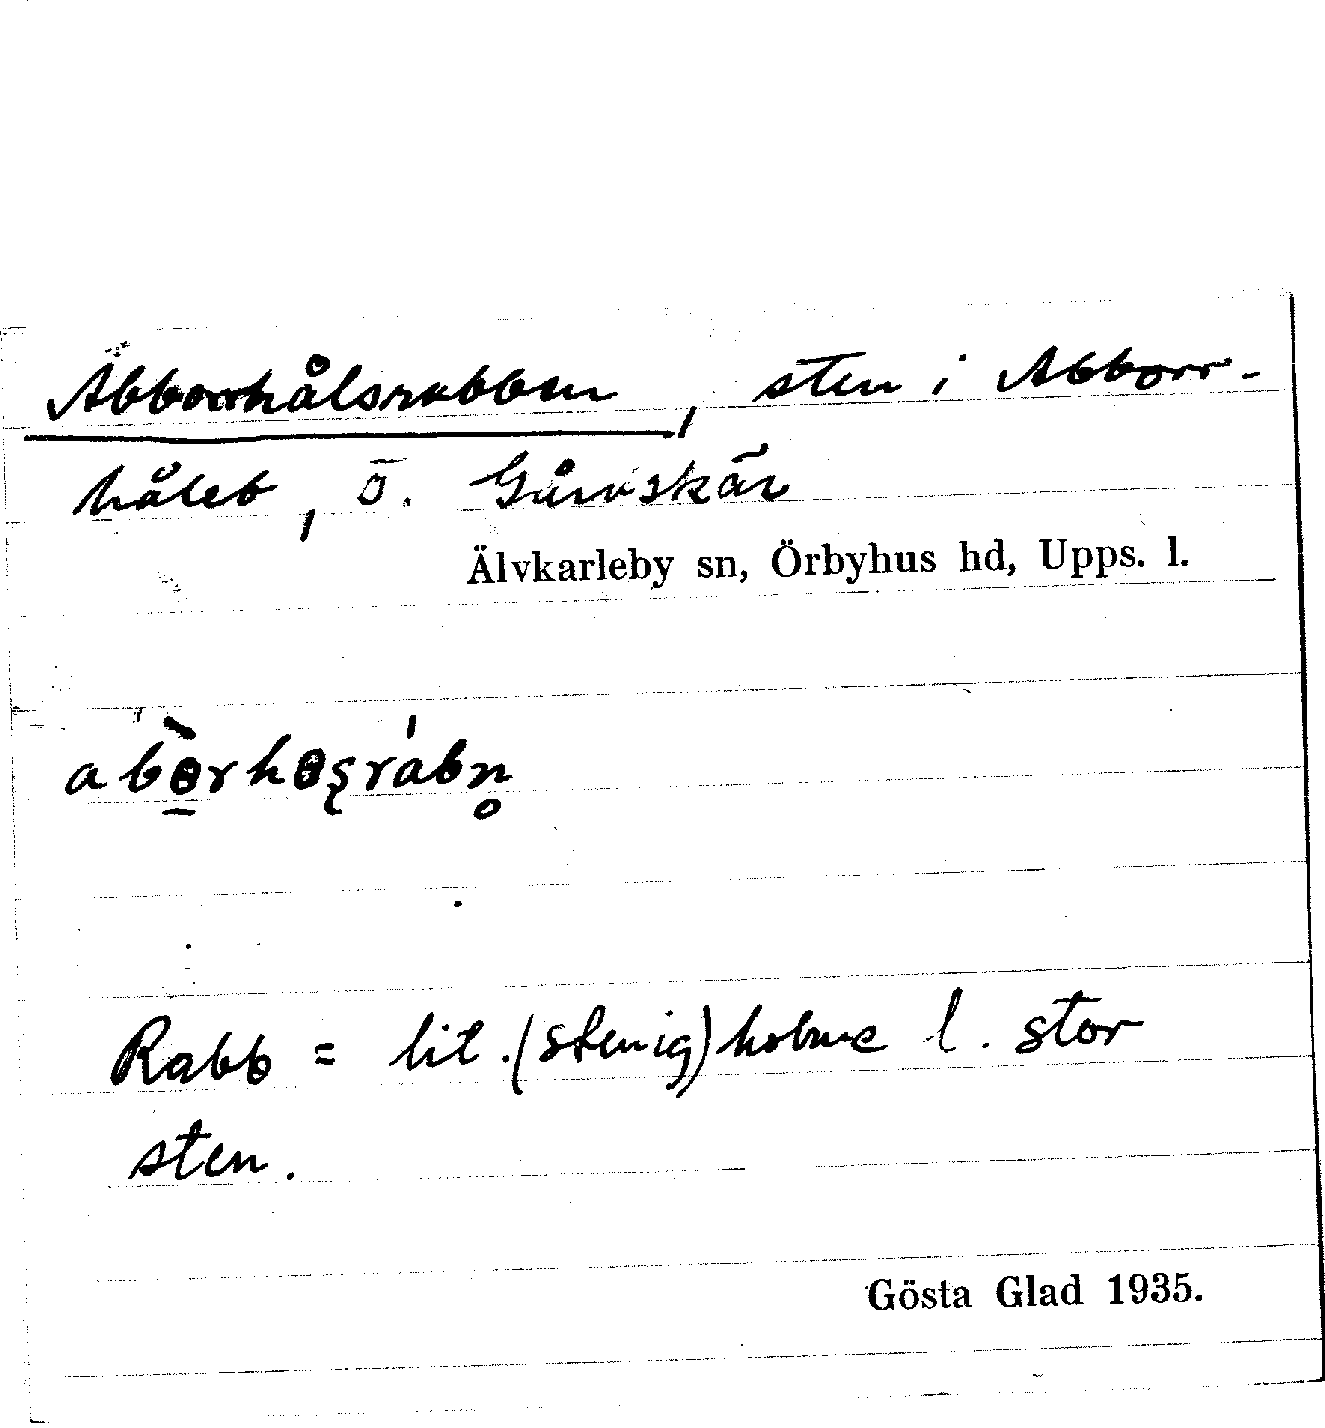 Abborrhålsrabben, sten i Abborr-
hålet, ö. Gårdskär
Älvkarleby sn, Örbyhus hd, Upps. l.
Rabb = lit. (stenig) holme l. stor
sten.
Gösta Glad 1935.